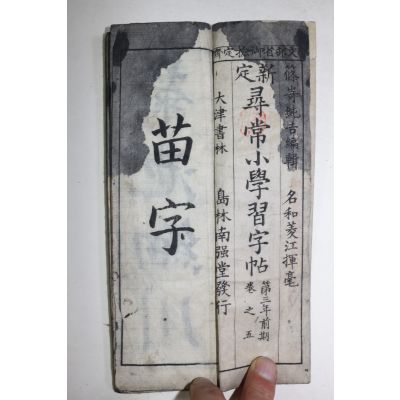 文部省御檢定済
篠嵜純吉編輯
名和菱江揮毫
新定
尋常小學習字帖
第三年前期
卷之五
大津書林
島林南强堂發行
苗字